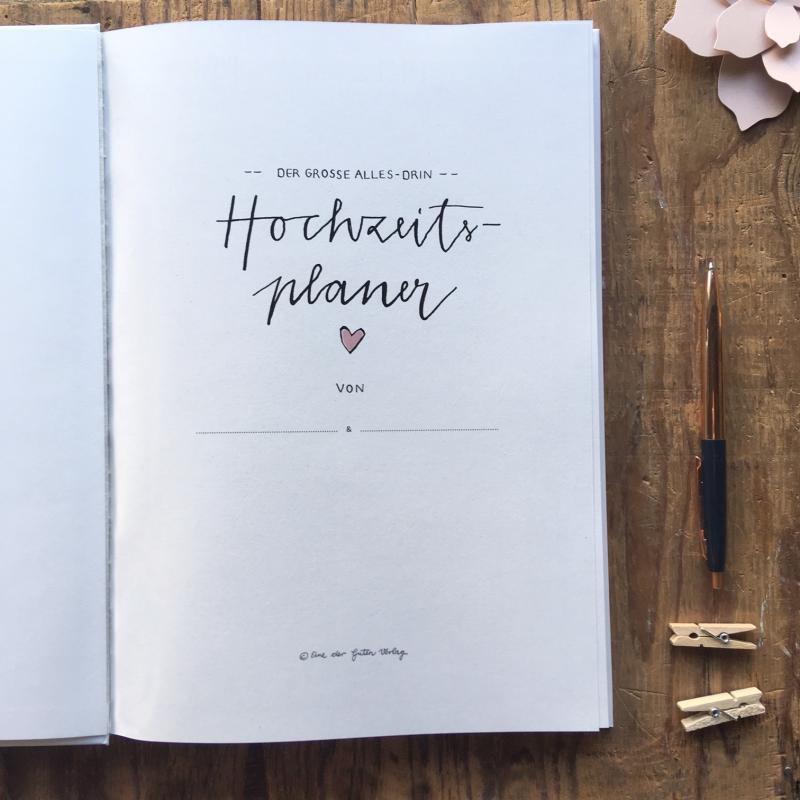 -- DER GROSSE ALLES-DRIN --
Hochzeits-
planer
VON
&
© Eine der Guten Verlag